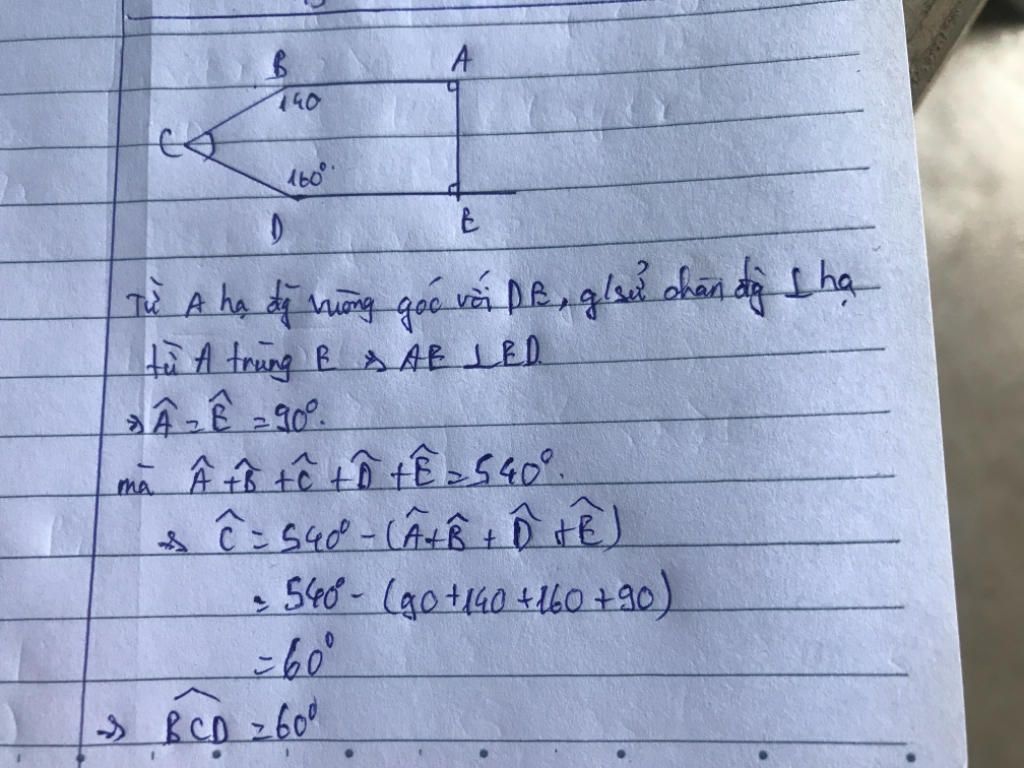 B A
140
C
160°
D E
Từ A hạ đg̀ vuông góc với DE, g/sử chân đg̀ ⊥ hạ
từ A trùng E → AE ⊥ ED
→ Â = Ê = 90°.
mà Â + B̂ + Ĉ + D̂ + Ê = 540°.
→ Ĉ = 540° - (Â + B̂ + D̂ + Ê)
= 540° - (90 + 140 + 160 + 90)
= 60°
→ B̂CD = 60°